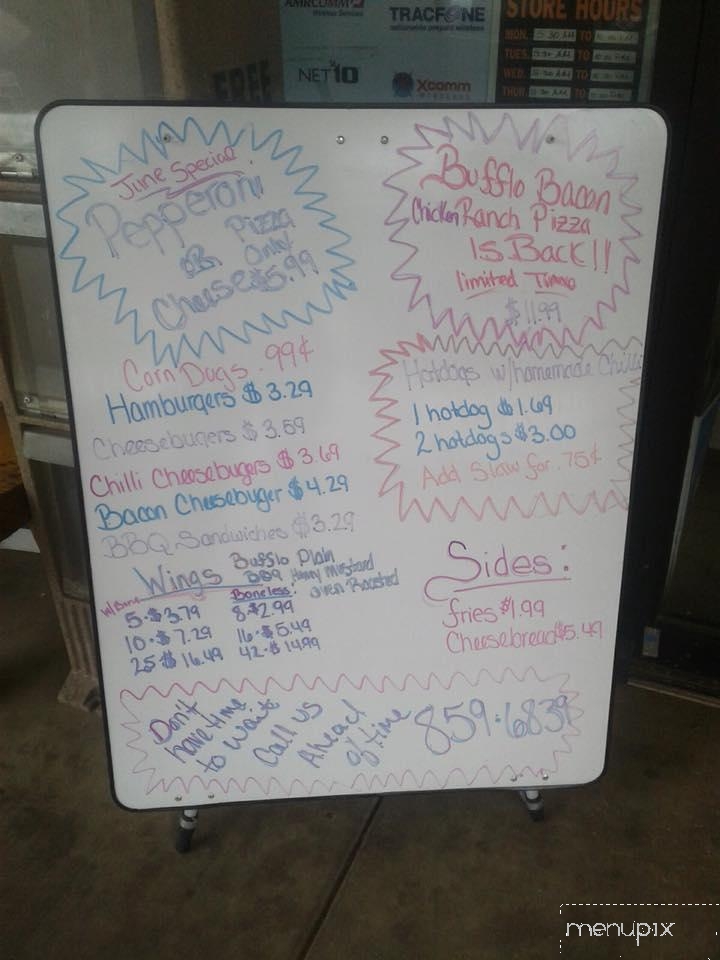 AMRCOMM
Wireless Services
TRACFONE
nationwide prepaid wireless
NET10
Xcomm
STORE HOURS
MON. 5:30 AM TO
TUES. 5:30 AM TO
WED. TO
THUR. TO
FREE
June Special
Pepperoni
OR Pizza
Cheese Only
$5.99
Bufflo Bacon
Chicken Ranch Pizza
Is Back!!
limited Time
$11.99
Corn Dogs .99¢
Hamburgers $3.29
Cheesebugers $3.59
Chilli Cheesebugers $3.69
Bacon Cheesebuger $4.29
BBQ Sandwiches $3.29
Hotdogs w/homemade Chilli
1 hotdog $1.69
2 hotdogs $3.00
Add Slaw for .75¢
Wings Bufflo Plain
BBQ Honey Mustard
Oven Roasted
W/Bone Boneless:
5-$3.79 8-$2.99
10-$7.29 16-$5.49
25-$16.49 42-$14.99
Sides:
fries $1.99
Cheesebread $5.49
Don't
have time
to wait
Call us
Ahead
of time
859-6839
menupix